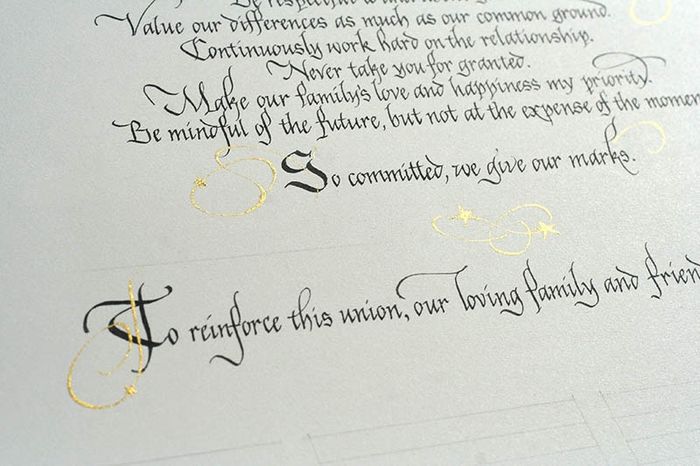 Be respectful
Value our differences as much as our common ground.
Continuously work hard on the relationship.
Never take you for granted.
Make our family's love and happiness my priority.
Be mindful of the future, but not at the expense of the momen
So committed, we give our marks.
To reinforce this union, our loving family and frien